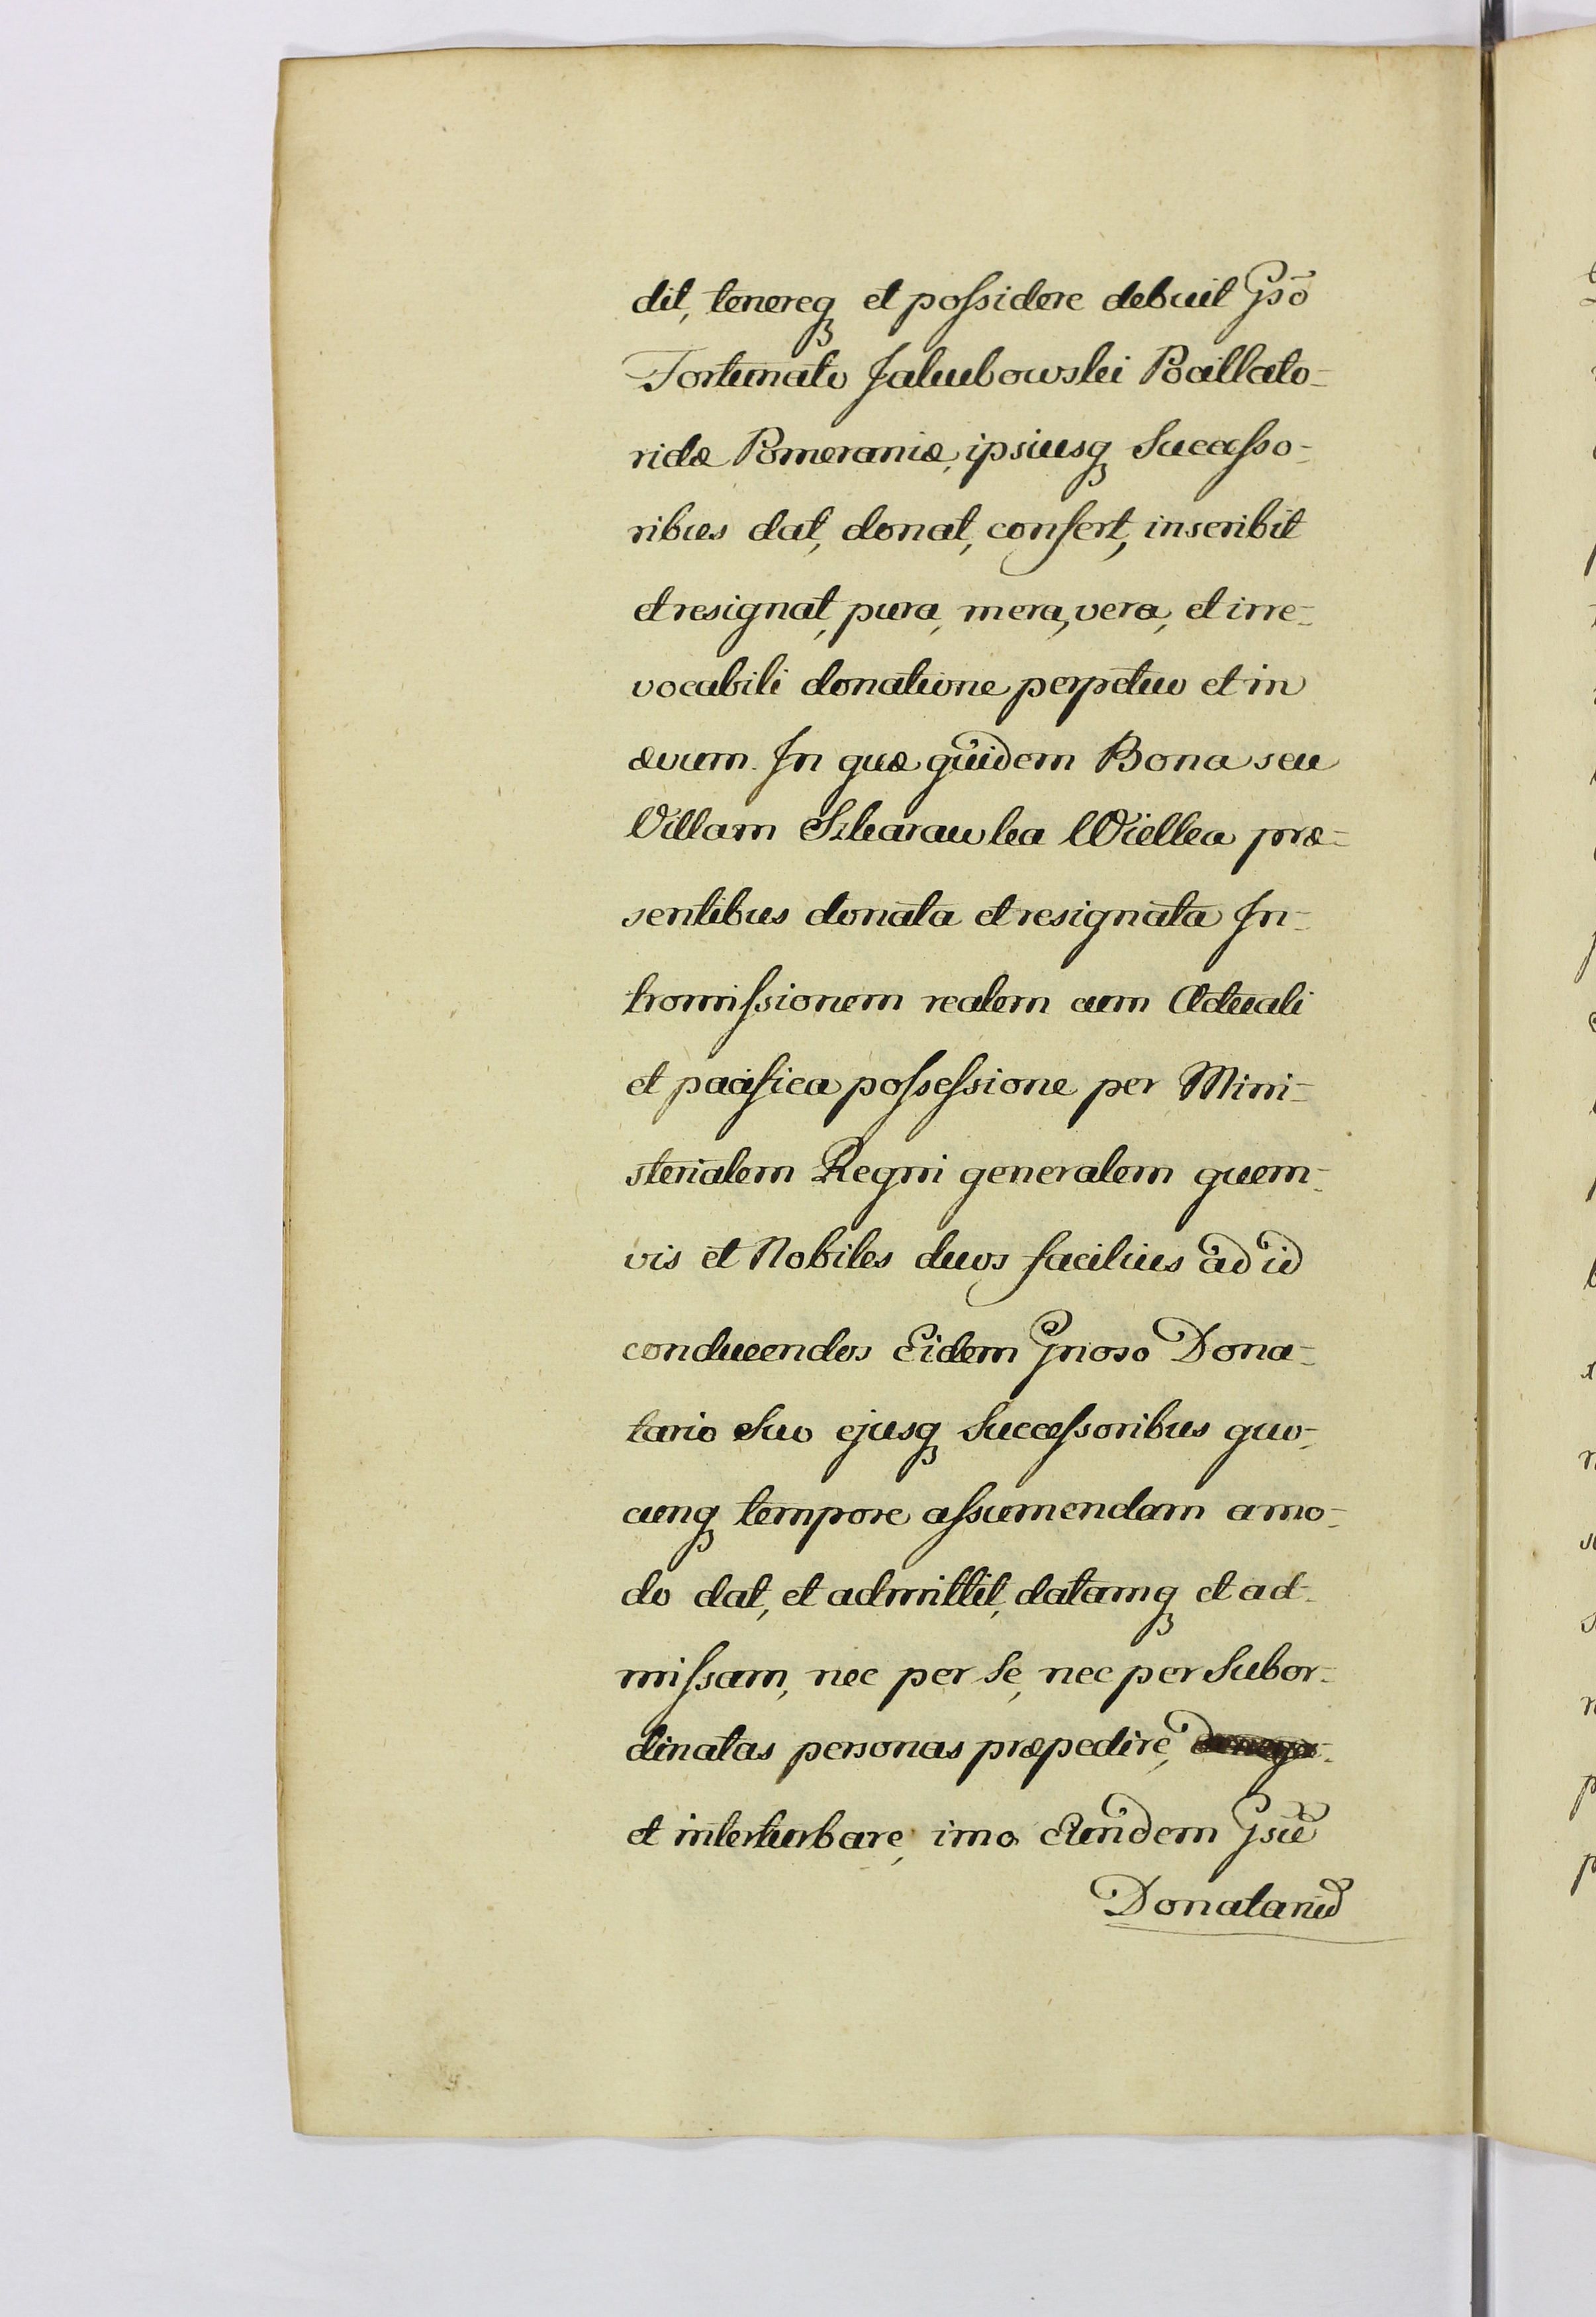 dit, tenereq et possidere debuit Gsō
Fortunato Jakubowski Pocillato-
ridæ Pomeraniæ, ipsiusq Successo-
ribus dat, donat, confert, inscribit
et resignat, pura, mera, vera, et irre-
vocabili donatione perpetuo et in
ævum. In quæ quidem Bona seu
Villam Szkarawka Wielka præ-
sentibus donata et resignata In-
tromissionem realem cum Actuali
et pacifica possessione per Mini-
sterialem Regni generalem quem-
vis et Nobiles duos facilius ad id
conducendos Eidem Gnoso Dona-
tario Suo ejusq Successoribus quo-
cunq tempore assumendam amo-
do dat, et admittit, datamq et ad-
missam, nec per Se, nec per Subor-
dinatas personas præpedire,
et interturbare, imo Eundem
Donatariu